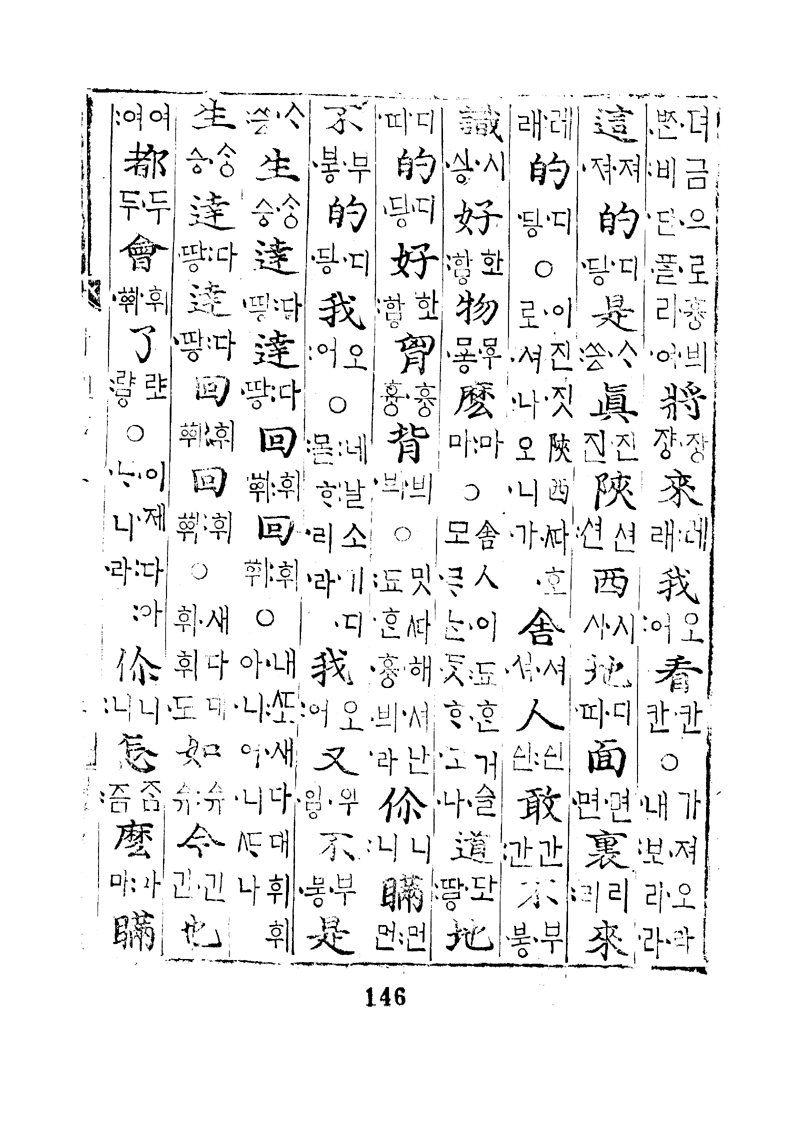 뎌금으로흉븨 ·비·단·플리·여 將쟝·쟝 來래:레 我:어오 看칸·칸 ○ 가져오라 ·내·보라라
這·져·져 的·딍·디 是:쓩·스 眞진·진 陝:션션 西사·시 地·띠·디 面·면·면 裏:리리 來
래레 的·딍·디 ○ ·이진·짓陝西·ᄯᅡ호 로·셔·나오·니가 舍셔·셔 人신:신 敢:간간 不붕·부
識·싱·시 好:핳한 物·뭉·무 麽마·마 ○ 숌人·이:됴ᄒᆞᆫ거·슬 모ᄅᆞᄂᆞᆫ듯ᄒᆞ·고·나 道:땋·단 地
·띠·디 的·딍·디 好:핳한 胷흉·흉 背·븨·븨 ○ 밋ᄯᅡ해·셔난 :됴ᄒᆞᆫ흉·븨·라 你:니니 瞞먼:먼
不·붕·부 的·딍·디 我:어오 ○ :네날소·기·디 :몯ᄒᆞ·리·라 我:어오 又·잉·우 不·붕·부 是
:쓩·스 生승·승 達·땅:다 達·땅:다 回:휘 回:휘 ○ ·내:ᄯᅩ·새다대휘휘 아·니·어·니ᄯᆞ나
生승·승 達·땅:다 達·땅:다 回:휘 回:휘 ○ ·새다대 휘휘도 如슈·슈 今긴·긴 也
:여여 都두·두 會휘 了:량랸 ○ ·이제:다:아 ·ᄂᆞ니·라 你:니니 怎:즘즘 麽마:마 瞞
146